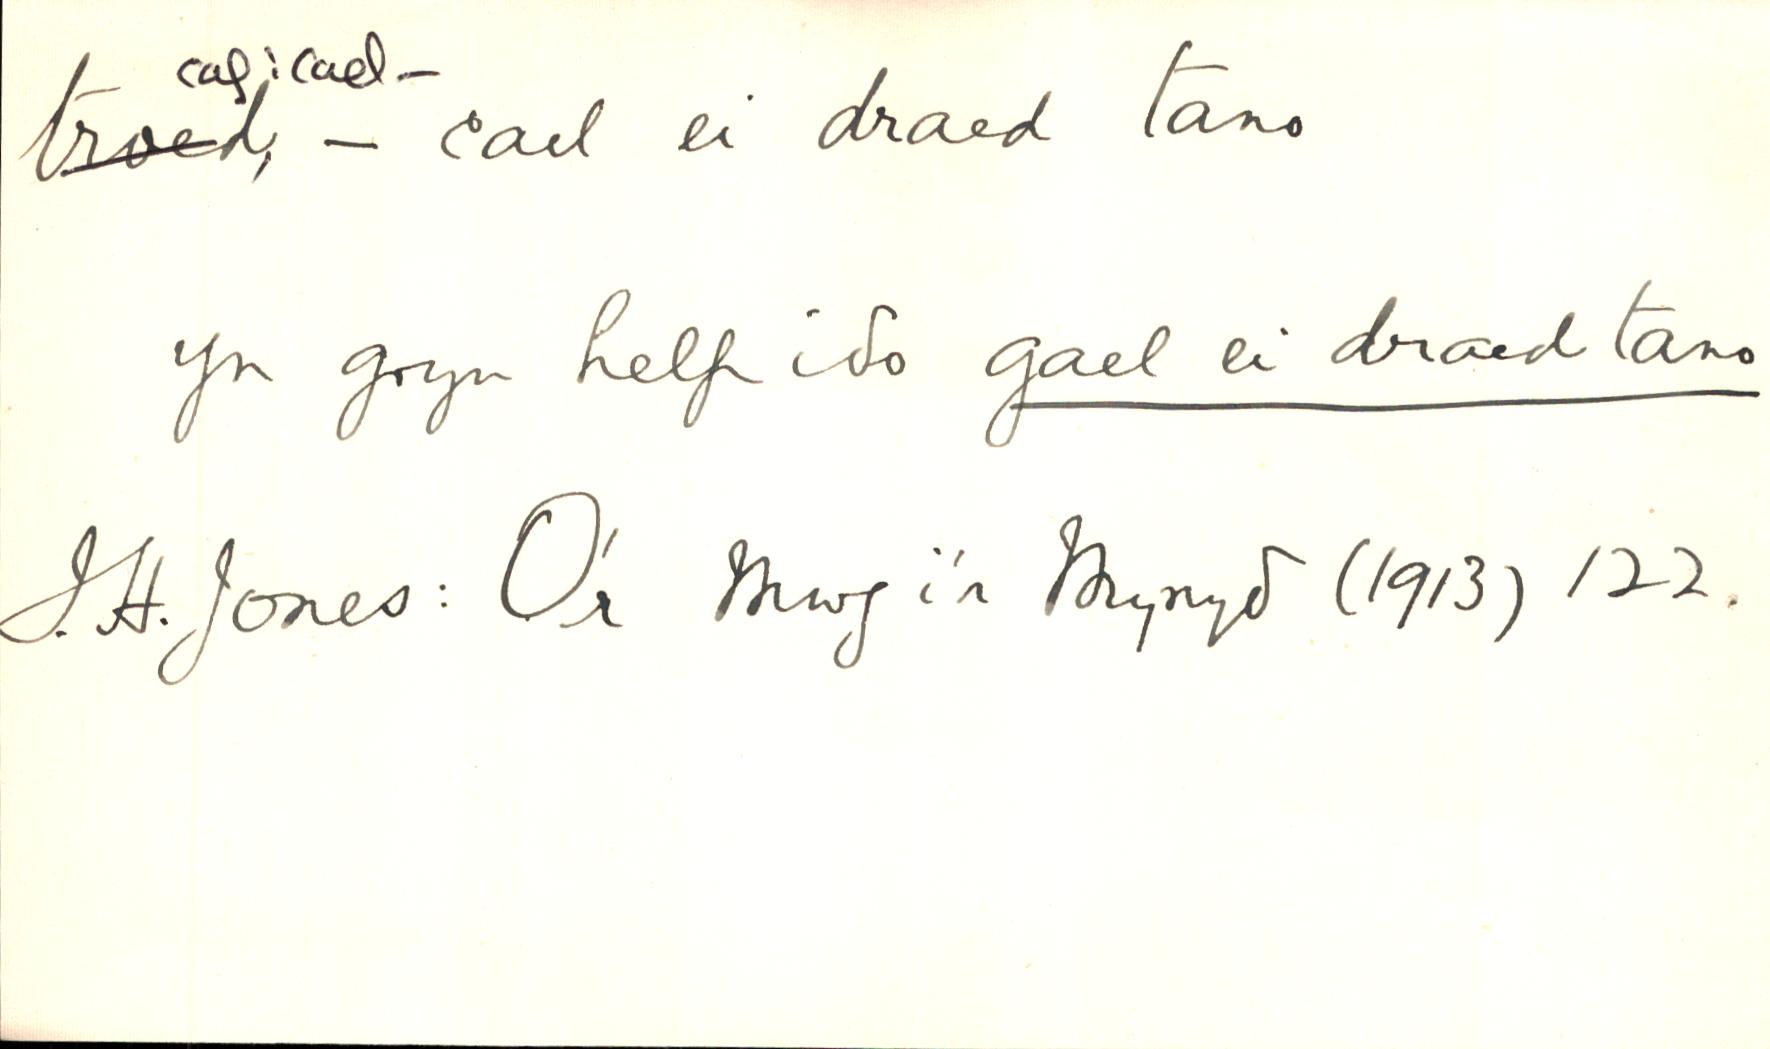 caf: cael –
troed, – cael ei draed tano
yn gryn help iδo gael ei draed tano
J. H. Jones: O'r Mwg i'r Mynyδ (1913) 122.